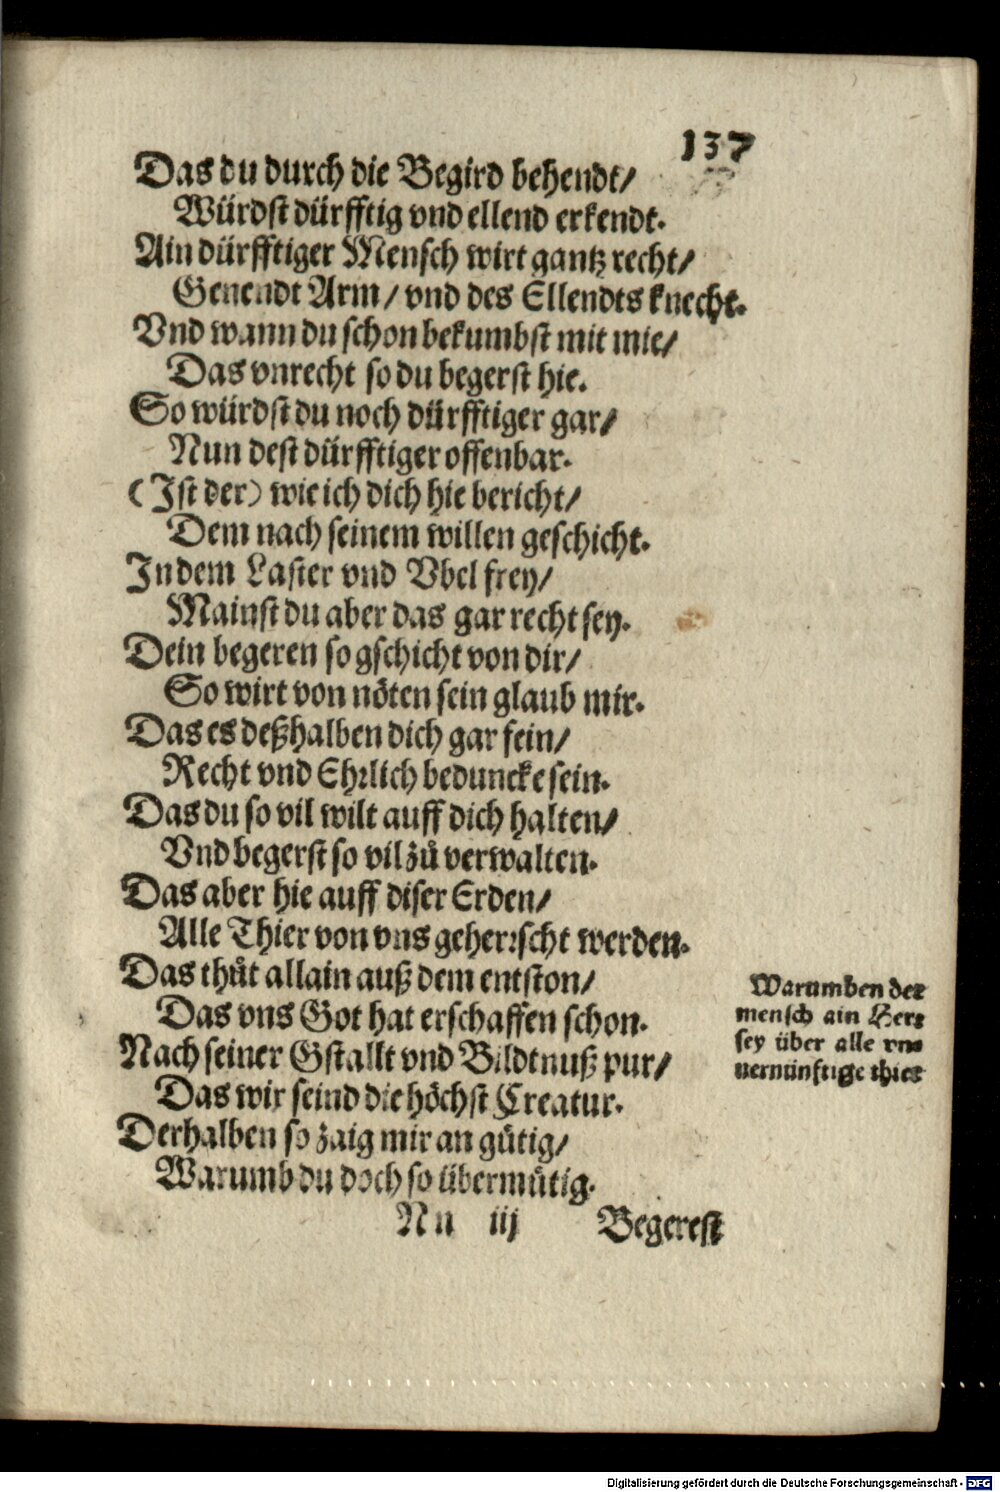 137
Das du durch die Begird behendt/
Würdst dürfftig vnd ellend erkendt.
Ain dürfftiger Mensch wirt gantz recht/
Genendt Arm/ vnd des Ellendts knecht.
Vnd wann du schon bekumbst mit mie/
Das vnrecht so du begerst hie.
So würdst du noch dürfftiger gar/
Nun dest dürfftiger offenbar.
(Ist der) wie ich dich hie bericht/
Dem nach seinem willen geschicht.
In dem Laster vnd Vbel frey/
Mainst du aber das gar recht sey.
Dein begeren so gschicht von dir/
So wirt von nöten sein glaub mir.
Das es deßhalben dich gar fein/
Recht vnd Ehrlich beduncke sein.
Das du so vil wilt auff dich halten/
Vnd begerst so vil zů verwalten.
Das aber hie auff diser Erden/
Alle Thier von vns geherrscht werden.
Das thůt allain auß dem entston/
Das vns Got hat erschaffen schon.
Nach seiner Gstallt vnd Bildtnuß pur/
Das wir seind die höchst Creatur.
Derhalben so zaig mir an gütig/
Warumb du doch so übermütig.
Warumben der
mensch ain Herr
sey über alle vn-
uernünftige thier
Nn iij Begerest
Digitalisierung gefördert durch die Deutsche Forschungsgemeinschaft - DFG